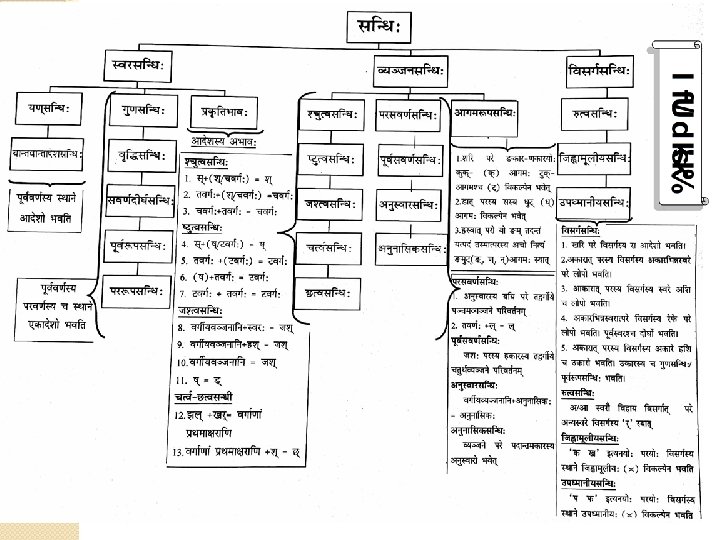 सन्धिः
स्वरसन्धिः
व्यञ्जनसन्धिः
विसर्गसन्धिः
यण्सन्धिः
गुणसन्धिः
प्रकृतिभावः
श्चुत्वसन्धिः
परसवर्णसन्धिः
आगमरूपसन्धिः
रुत्वसन्धिः
वृद्धिसन्धिः
ष्टुत्वसन्धिः
पूर्वसवर्णसन्धिः
जिह्वामूलीयसन्धिः
सवर्णदीर्घसन्धिः
जश्त्वसन्धिः
अनुस्वारसन्धिः
उपध्मानीयसन्धिः
पूर्वरूपसन्धिः
चर्त्वसन्धिः
अनुनासिकसन्धिः
पररूपसन्धिः
छत्वसन्धिः
पूर्ववर्णस्य स्थाने
आदेशो भवति
पूर्ववर्णस्य
परवर्णस्य च स्थाने
एकादेशो भवति
आदेशस्य अभावः
श्चुत्वसन्धिः
1. स्+(श्/चवर्गः) = श्
2. तवर्गः+(श्/चवर्गः) =चवर्गः
3. चवर्गः+तवर्गः - चवर्गः
ष्टुत्वसन्धिः
4. स्+(ष्/टवर्गः) - ष्
5. तवर्गः +(टवर्गः) = टवर्गः
6. (ष्)+तवर्गः = टवर्गः
7. टवर्गः + तवर्गः = टवर्गः
जश्त्वसन्धिः
8. वर्गीयव्यञ्जनानि+स्वरः - जश्
9. वर्गीयव्यञ्जनानि+हश् - जश्
10. वर्गीयव्यञ्जनानि = जश्
11. ष् = ड्
चर्त्व-छत्वसन्धी
12. झल् +खर्= वर्गाणां
प्रथमाक्षराणि
13. वर्गाणां प्रथमाक्षराणि +श् - छ्
1. शरि परे ङकार-णकारयोः
कुक्- (क्) आगमः टुक्-
आगमश्च (ट्) विकल्पेन भवेत्
2. डात् परस्य सस्य धुट् (ध्)
आगमः विकल्पेन भवेत्
3. ह्रस्वात् परो यो ङम् तदन्तं
यत्पदं तस्मात्परस्य अचो नित्यं
ङमुट्(ङ्, ण्, न्)आगमः स्यात्
परसवर्णसन्धिः
1. अनुस्वारस्य ययि परे तद्वर्गीय
पञ्चमव्यञ्जने परिवर्तनम्
2. तवर्गः +ल् - ल्
पूर्वसवर्णसन्धिः
जशः परस्य हकारस्य तद्वर्गीये
चतुर्थव्यञ्जने परिवर्तनम्
अनुस्वारसन्धिः
वर्गीयव्यञ्जनानि+अनुनासिकः
- अनुनासिकः
अनुनासिकसन्धिः
व्यञ्जने परे पदान्तमकारस्य
अनुस्वारो भवेत्
विसर्गसन्धिः
1. शरि परे विसर्गस्य स आदेशो भवति।
2. अकारात् परस्य विसर्गस्य अकारभिन्नस्वरे
परे लोपो भवति।
3. आकारात् परस्य विसर्गस्य स्वरे अशि
च लोपो भवति।
4. अकारभिन्नस्वरात्परे विसर्गस्य रेफे परे
लोपो भवति। पूर्वस्वरश्च दीर्घो भवति।
5. अकारात् परस्य विसर्गस्य अकारे हशि
च उकारो भवति। उकारस्य च गुणसन्धिः
पूर्वरूपसन्धिः भवति।
रुत्वसन्धिः
अ/आ स्वरौ विहाय विसर्गात् परे
विसर्गस्य 'र्'
जिह्वामूलीयसन्धिः
'क ख' इत्यनयोः परयोः विसर्गस्य
स्थाने जिह्वामूलीयः (×) विकल्पेन भवति
उपध्मानीयसन्धिः
'प फ' इत्यनयोः परयोः विसर्गस्य
स्थाने उपध्मानीयः (×) विकल्पेन भवति